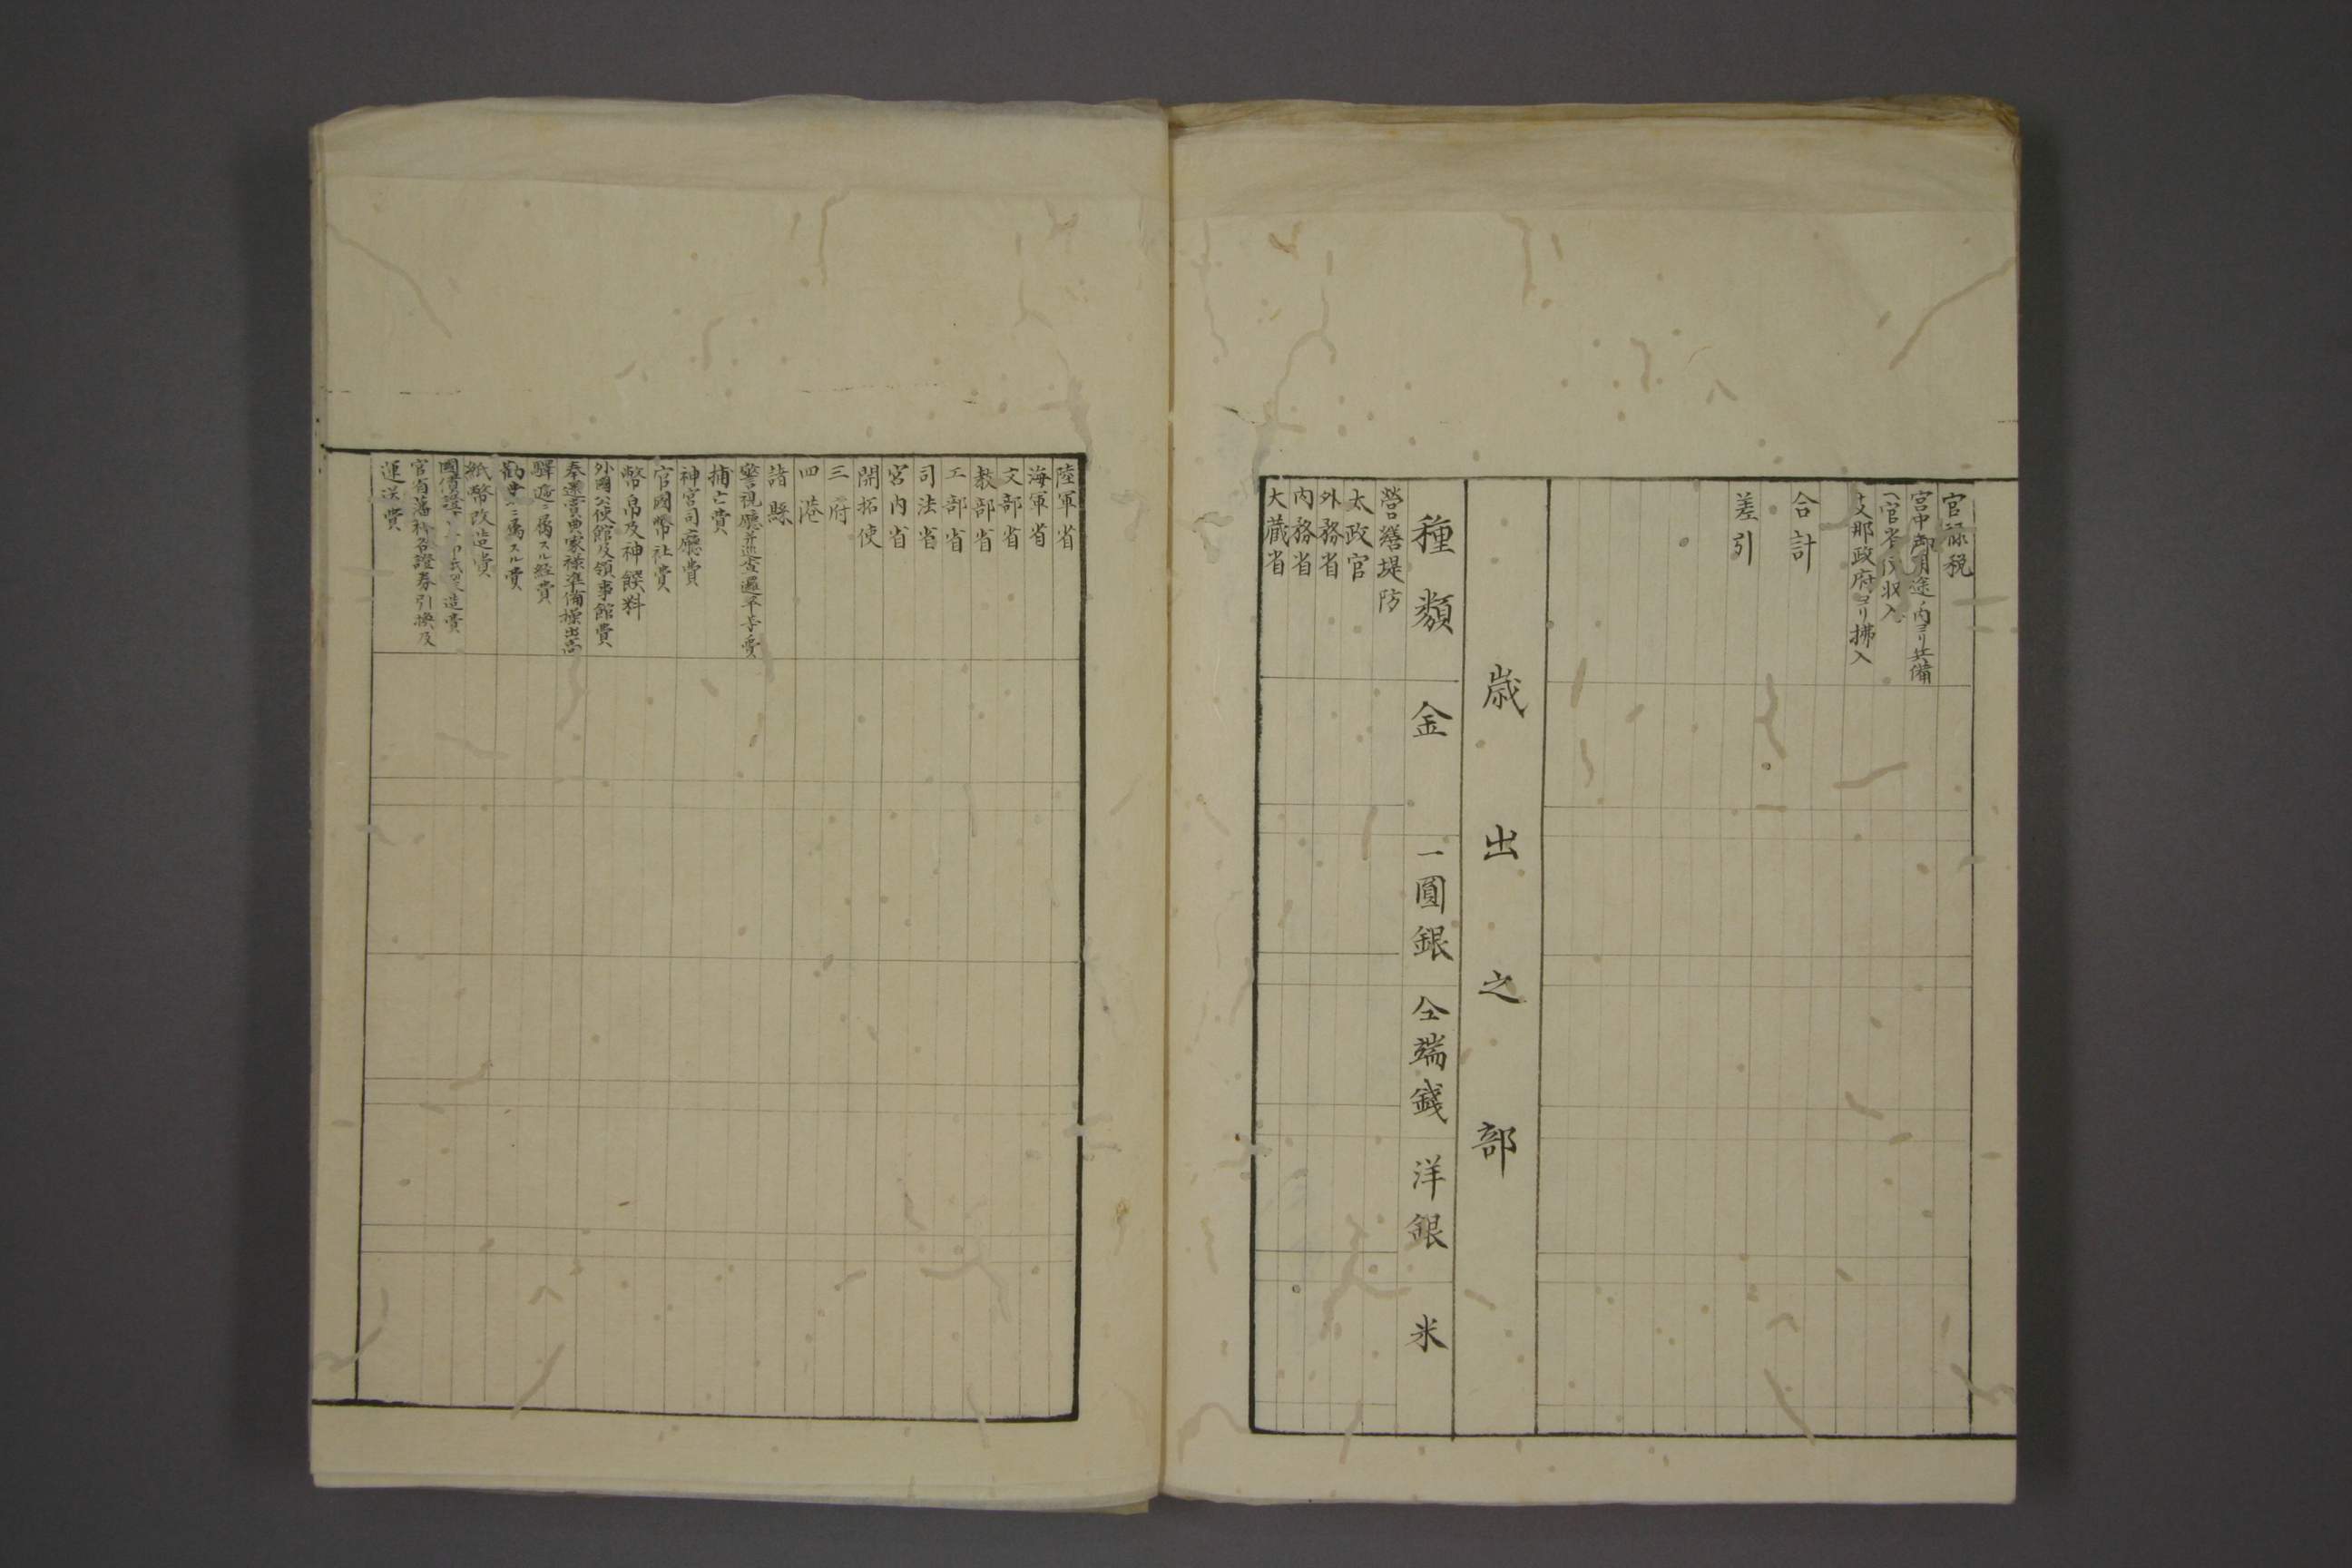 官禄税
宮中御用途ノ内ヨリ兵備
官省 収入
支那政府ヨリ拂入
合計
差引
歳出之部
種類 金 一圓銀 仝端錢 洋銀 米
營繕堤防
太政官
外務省
内務省
大藏省
陸軍省
海軍省
文部省
教部省
工部省
司法省
宮内省
開拓使
三府
四港
諸縣
警視廳并巡査邏卒等費
捕亡費
神宮司廳費
官國幣社費
幣帛及神饌料
外國公使館及領事館費
奉還賞典家禄準備操出高
驛逓ニ屬スル経費
勸 ニ屬スル費
紙幣改造費
國債證 印紙製造費
官省藩 各證券引換及
運送費